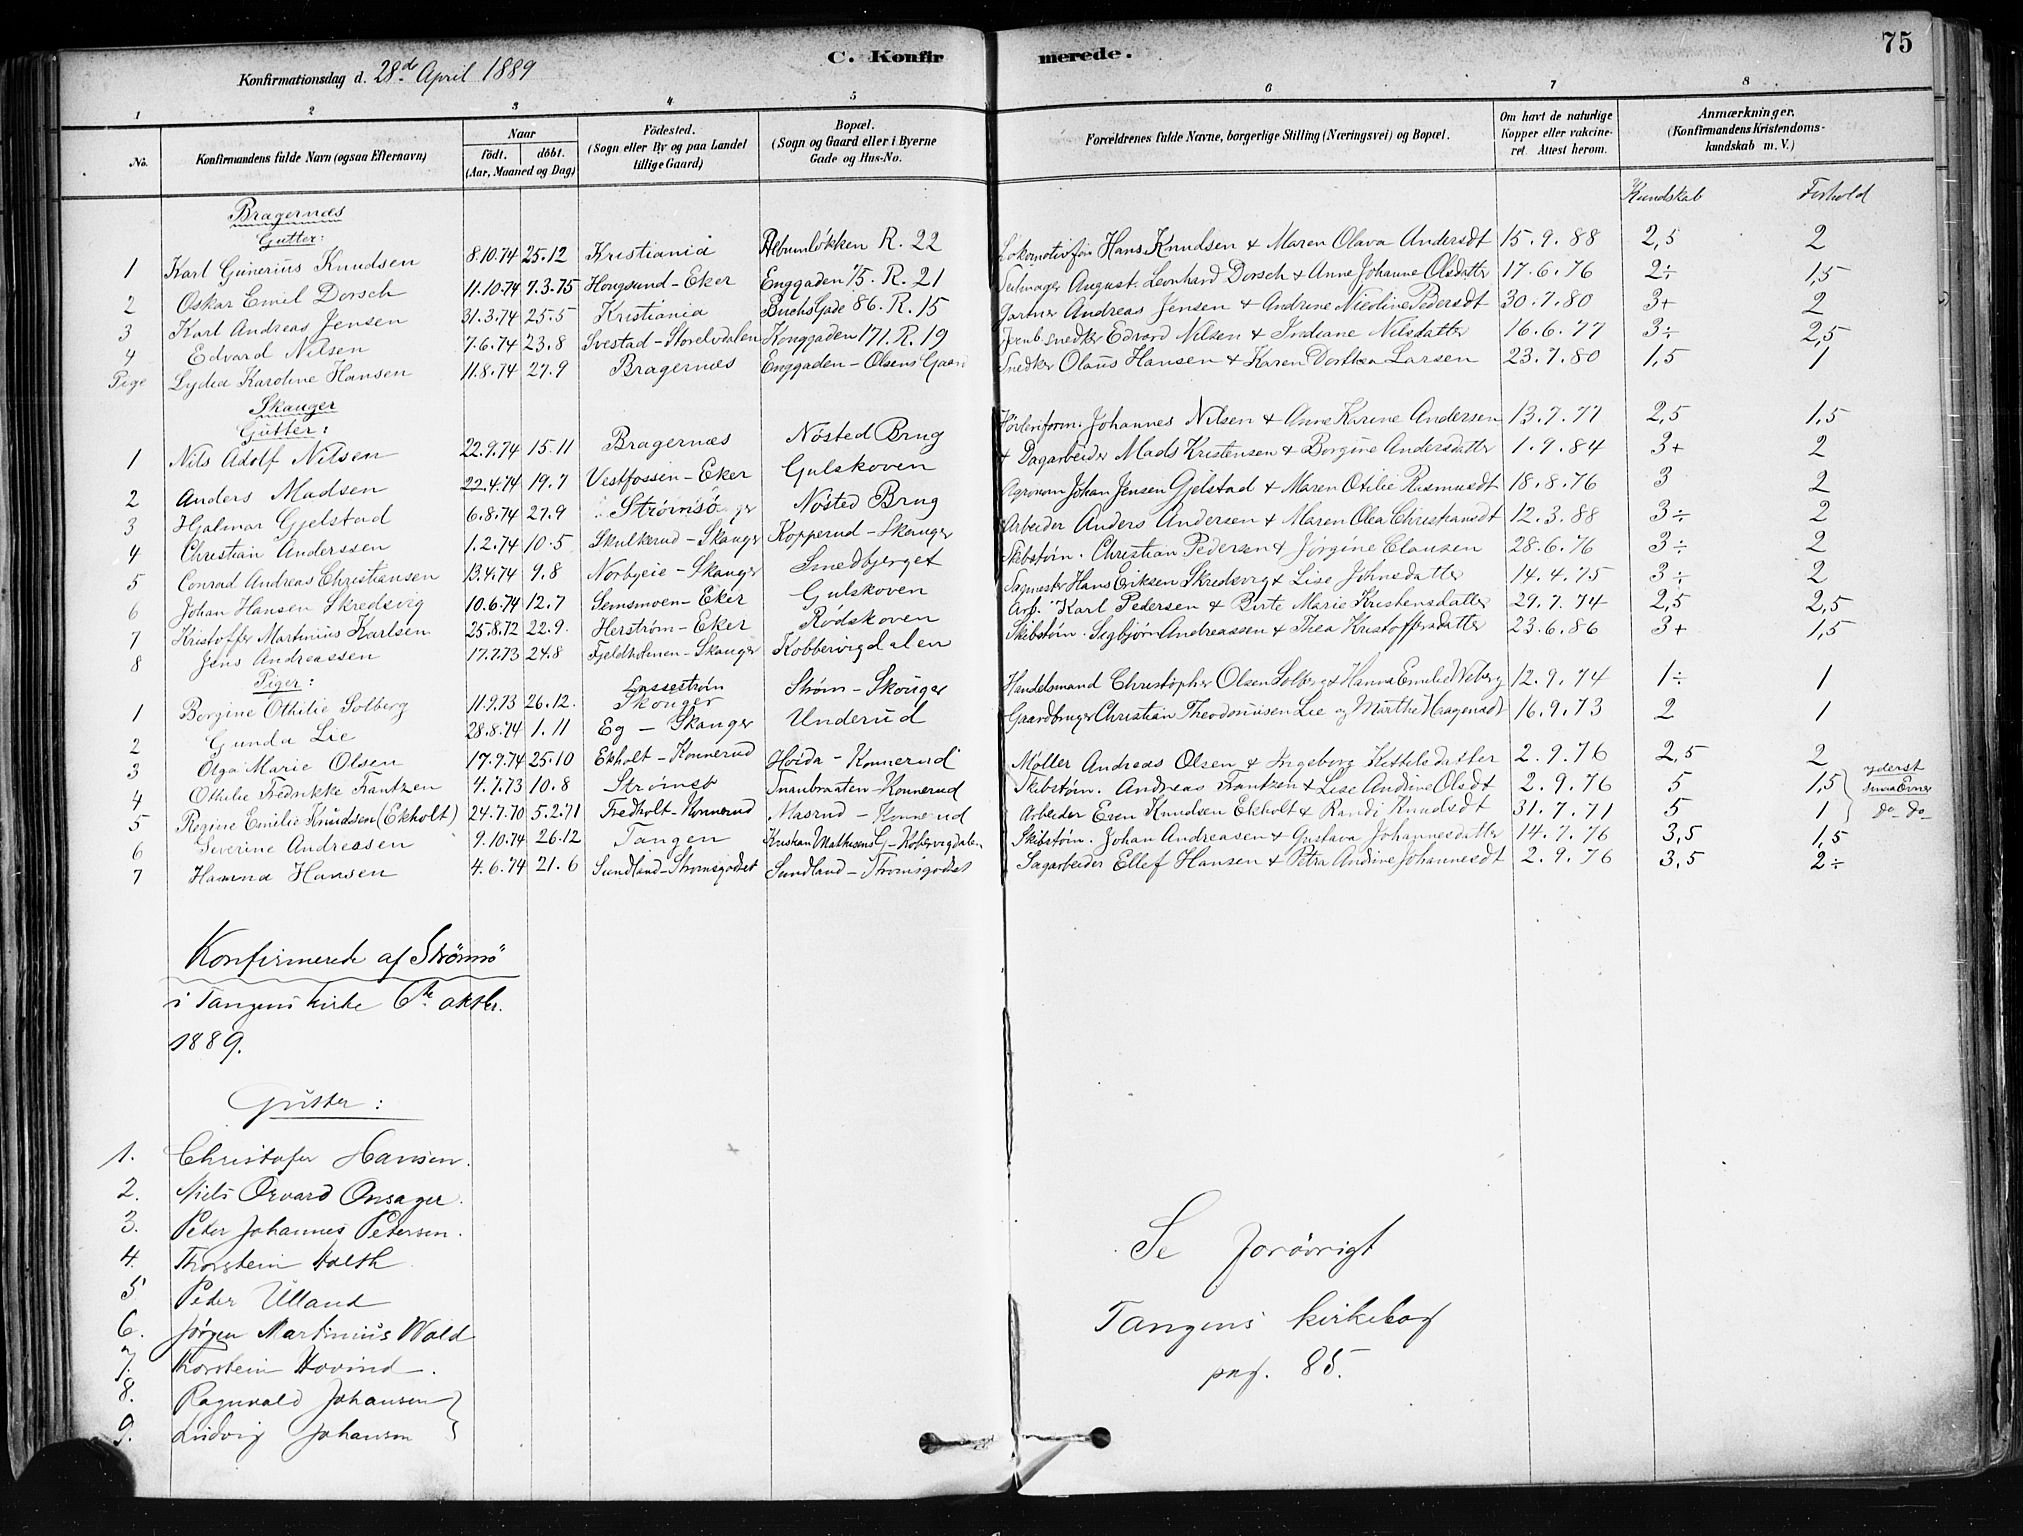 75
C. Konfirmerede.
Konfirmationsdag d. 28de April 1889
1 2 3 4 5 6 7 8
No. Konfirmandens fulde Navn (ogsaa Efternavn) Naar født. døbt. (Aar, Maaned og Dag) Födested. (Sogn eller By og paa Landet tillige Gaard) Bopæl. (Sogn og Gaard eller i Byerne Gade og Hus-No. Forældrenes fulde Navne, borgerlige Stilling (Næringsvei) og Bopæl. Om havt de naturlige Kopper eller vaccineret. Attest herom. Anmærkninger. (Konfirmandens Kristendomskundskab m. V.)
Kundskab Forhold
Bragernæs
Gutter:
1 Karl Gunerius Knudsen 8.10.74 25.12 Kristiania Albumløkken R. 22 Lokomotivfør Hans Knudsen & Maren Olava Andersdt 15.9.88 2,5 2
2 Oskar Emil Dorsch 11.10.74 7.3.75 Hougsund-Eker Enggaden 15. R. 21 Seilmager August Leonhard Dorsch & Anne Johanne Olsdatter 17.6.76 2÷ 1,5
3 Karl Andreas Jensen 31.3.74 25.5 Kristiania Buchs Gade 86. R. 15 Garver Andreas Jensen & Andrine Nicoline Pedersdt 30.7.80 3+ 2
4 Edvard Nilsen 7.6.74 23.8 Svestad-Storelvdalen Konggaden 171. R. 19 Jernb.snedker Edvard Nilsen & Indiane Nilsdatter 16.6.77 3÷ 2,5
Pige Lydia Karoline Hansen 11.8.74 27.9 Bragernæs Enggaden-Olsens Gaard Snedker Olaus Hansen & Karen Dorthea Larsen 23.7.80 1,5 1
Skauger
Gutter:
1 Nils Adolf Nilsen 22.9.74 15.11 Bragernæs Nøsted Brug Johannes Nilsen & Anne Karine Andersen 13.7.77 2,5 1,5
2 Anders Madsen 22.4.74 19.7 Vestfossen-Eker Gulskoven + Dagarbeider Mads Kristensen & Borgine Andersdatter 1.9.84 3+ 2
3 Hjalmar Gjelstad 6.8.74 27.9 Strømsø Nøsted Brug Agronom Johan Jensen Gjelstad & Maren Otilie Rasmusdt 18.8.76 3 2
4 Christian Anderssen 1.2.74 10.5 Skulkerud-Skauger Kopperud-Skauger Arbeider Anders Andersen & Maren Olea Christiansdt 12.3.88 3÷ 2
5 Conrad Andreas Christiansen 13.4.74 9.8 Norbyeie-Skauger Smedbjerget Skibstøm. Christian Pedersen & Jørgine Clausen 28.6.76 3÷ 2
6 Johan Hansen Skredsvig 10.6.74 12.7 Semsmoen-Eker Gulskoven Sagmester Hans Eriksen Skredsvig & Lise Johnsdatter 14.4.75 3÷ 2
7 Kristoffer Martinius Karlsen 25.8.72 22.9. Herstrøm-Eker Rødskoven Arb. Karl Pedersen & Birte Marie Kristensdatter 29.7.74 2,5 2,5
8 Jens Andreassen 17.7.73 24.8 Fjeldholmen-Skauger Kobbervigdalen Skibstøm. Segbjørn Andreassen & Thea Kristoffersdatter 23.6.86 3+ 1,5
Piger:
1 Borgine Othilie Solberg 11.9.73 26.12. Lassestrøm Skouger Strøm-Skouger Handelsmand Christopher Olsen Solberg & Hanna Emilie Weberg 12.9.74 1÷ 1
2 Gunda Lie 28.8.74 1.11 Eg-Skauger Underud Gaardbruger Christian Theodoriusen Lie og Marthe 16.9.73 2 1
3 Olga Marie Olsen 17.9.74 25.10 Ekholt-Konnerud Høida-Konnerud Møller Andreas Olsen & Ingeborg Kittelsdatter 2.9.76 2,5 2
4 Othilie Fredrikke Frantzen 4.7.73 10.8 Strømsø Tranbraaten-Konnerud Skibstøm. Andreas Frantzen & Lise Andrine Olsdt 2.9.76 5 1,5 yderst smaa Evner
5 Regine Emilie Knudsen (Ekholt) 24.7.70 5.2.71 Fredholt-Konnerud Masrud-Konnerud Arbeider Even Knudsen Ekholt & Randi Knudsdt 31.7.71 5 1 do do
6 Severine Andreasen 9.10.74 26.12 Tangen Kristian Mathisens G-Kobervigdalen Skibstøm. Johan Andreasen & Gustava Johannesdatter 14.7.76 3,5 1,5
7 Hanna Hansen 4.6.74 21.6 Sundland-Strømsgodset Sundland-Strømsgodset Sagarbeider Ellef Hansen & Petra Andrine Johannesdt 2.9.76 3,5 2÷
Konfirmerede af Strømsø
i Tangens kirke 6te oktbr.
1889.
Gutter:
1. Christofer Hansen.
2. Niels Orvard Onsager.
3. Peter Johannes Petersen.
4. Thorstein Holth
5 Peter Ulland
6. Jørgen Martinius Wold
7. Thorstein Hovind.
8. Ragnvald Johansen
9. Ludvig Johansen
Se forøvrigt
Tangens kirkebog
pag. 85.